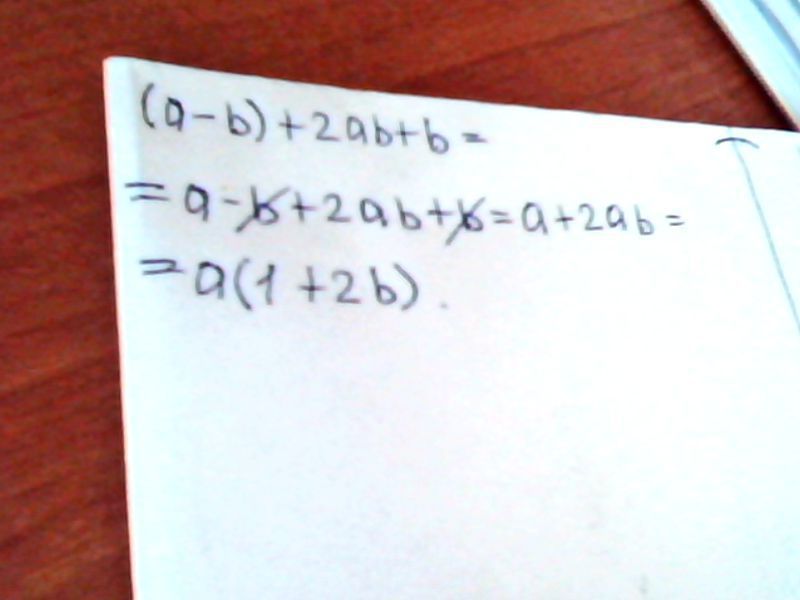 (a-b)+2ab+b=
=a-b+2ab+b=a+2ab=
=a(1+2b).